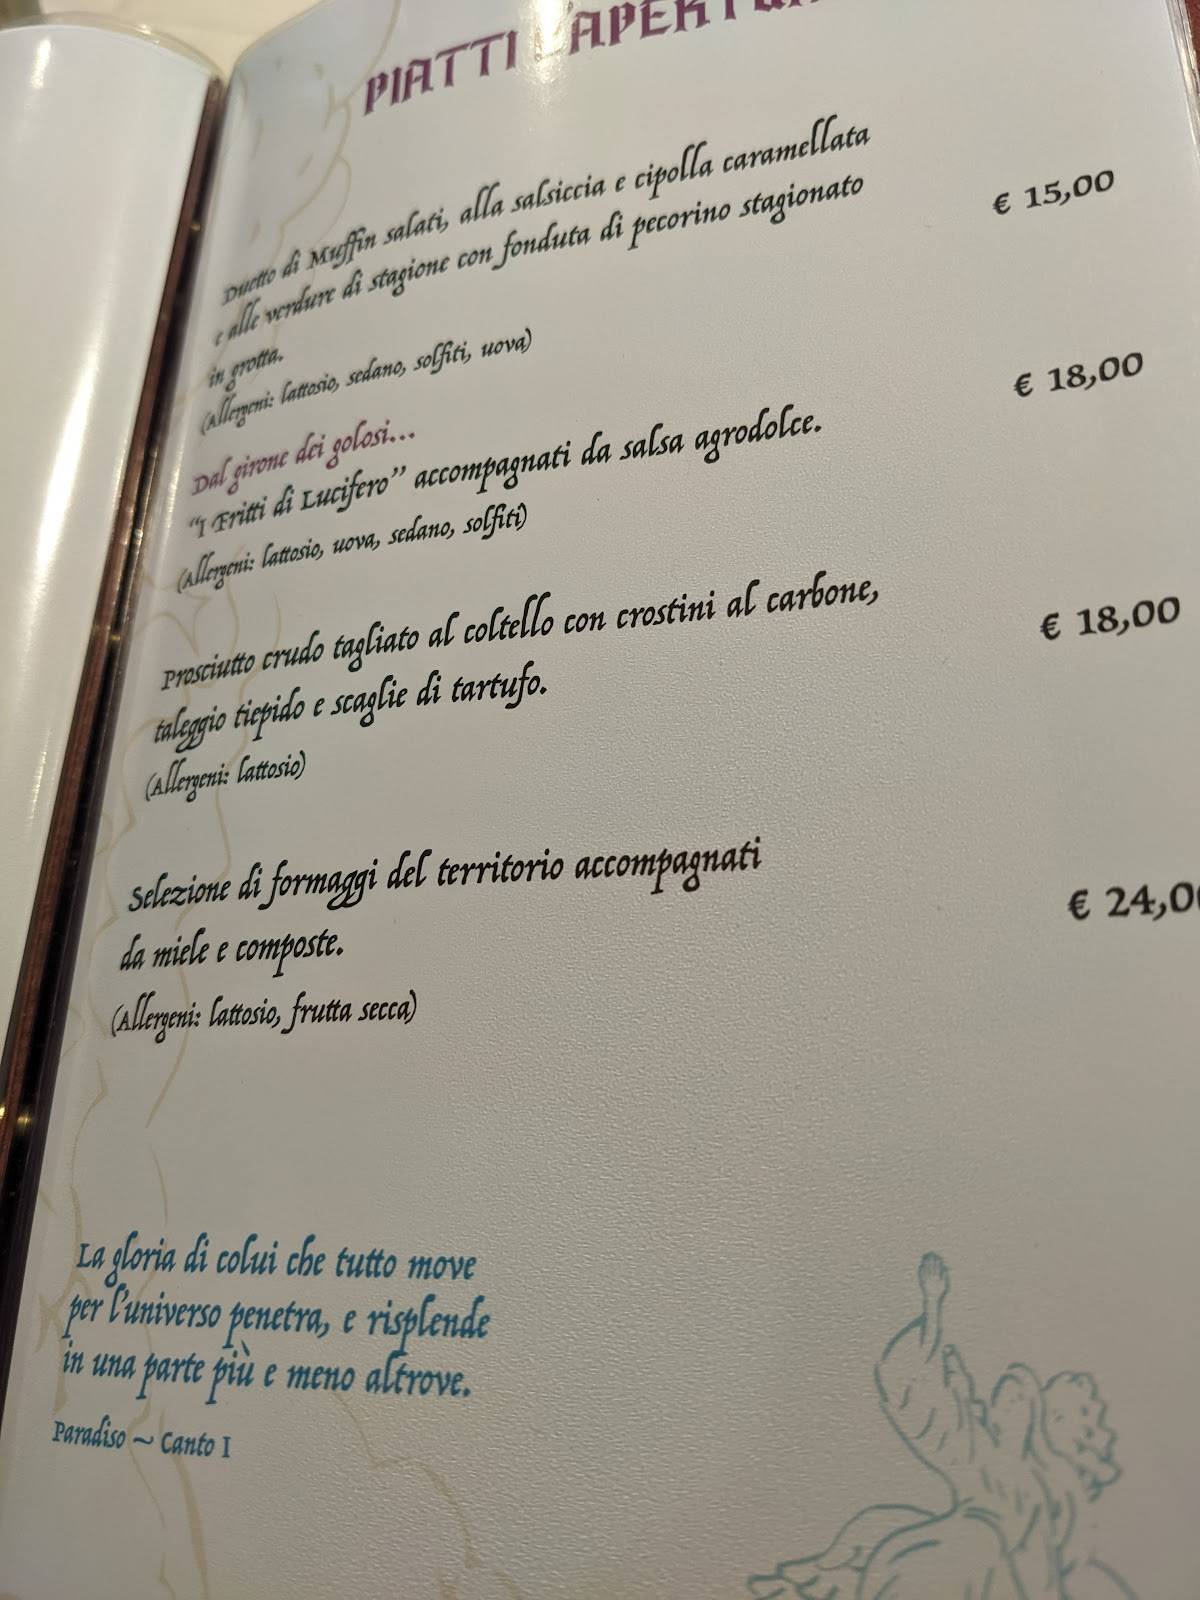 PIATTI D'APERTURA
Duetto di Muffin salati, alla salsiccia e cipolla caramellata
e alle verdure di stagione con fonduta di pecorino stagionato
in grotta.
€ 15,00
(Allergeni: lattosio, sedano, solfiti, uova)
Dal girone dei golosi...
"I Fritti di Lucifero" accompagnati da salsa agrodolce.
€ 18,00
(Allergeni: lattosio, uova, sedano, solfiti)
Prosciutto crudo tagliato al coltello con crostini al carbone,
taleggio tiepido e scaglie di tartufo.
€ 18,00
(Allergeni: lattosio)
Selezione di formaggi del territorio accompagnati
da miele e composte.
€ 24,00
(Allergeni: lattosio, frutta secca)
La gloria di colui che tutto move
per l'universo penetra, e risplende
in una parte più e meno altrove.
Paradiso ~ Canto I